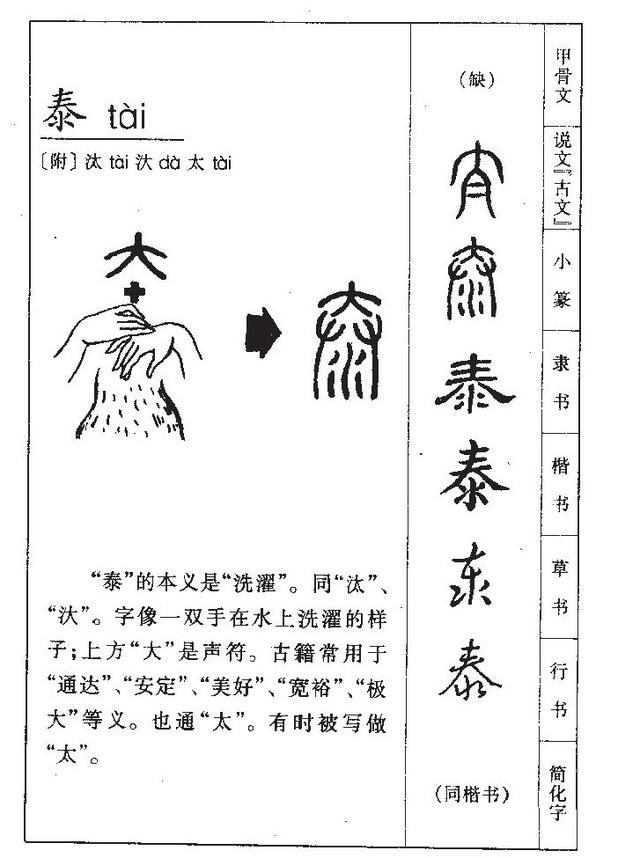 泰 tài
〔附〕汰 tài 汏 dà 太 tài
大
“泰”的本义是“洗濯”。同“汰”、
“汏”。字像一双手在水上洗濯的样
子；上方“大”是声符。古籍常用于
“通达”、“安定”、“美好”、“宽裕”、“极
大”等义。也通“太”。有时被写做
“太”。
（缺）
泰
泰
泰
泰
泰
（同楷书）
甲骨文
说文『古文』
小篆
隶书
楷书
草书
行书
简化字